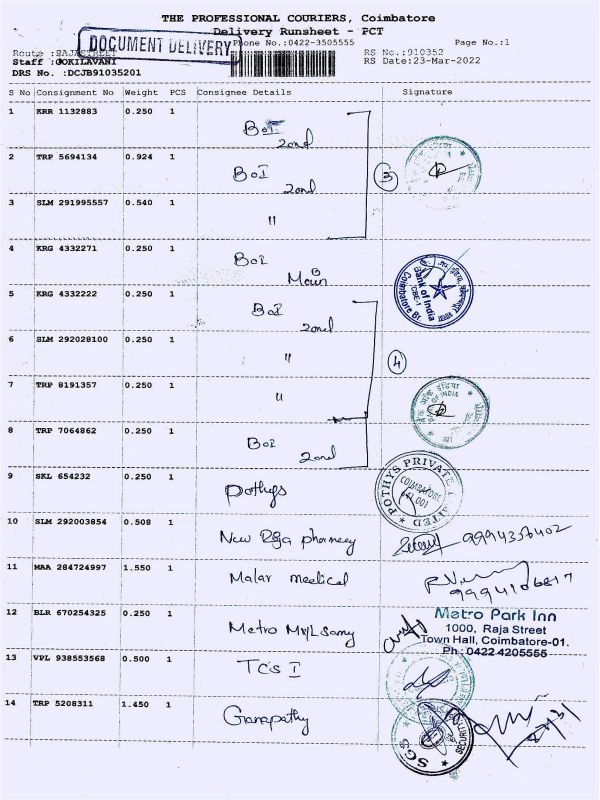 THE PROFESSIONAL COURIERS, Coimbatore
Delivery Runsheet - PCT
DOCUMENT DELIVERY
Phone No.:0422-3505555
Page No.:1
Route :RAJASTREET
RS No.:910352
Staff :GOKILAVANI
RS Date:23-Mar-2022
DRS No. :DCJB91035201
S No Consignment No Weight PCS Consignee Details Signature
1 KRR 1132883 0.250 1 BoI
2ond
2 TRP 5694134 0.924 1 BoI
2ond
3
3 SLM 291995557 0.540 1 "
4 KRG 4332271 0.250 1 BoI
Main
Bank of India
CBE-1
Coimbatore Br.
5 KRG 4332222 0.250 1 BoI
2ond
6 SLM 292028100 0.250 1 "
4
7 TRP 8191357 0.250 1 "
OF INDIA
8 TRP 7064862 0.250 1 BoI
2ond
9 SKL 654232 0.250 1 Pothys
POTHYS PRIVATE LIMITED
COIMBATORE
641 001
10 SLM 292003854 0.508 1 New Raja pharmacy
9994356402
11 MAA 284724997 1.550 1 Malar medical
9994106817
12 BLR 670254325 0.250 1 Metro
Metro Park Inn
1000, Raja Street
Town Hall, Coimbatore-01.
Ph : 0422 4205555
13 VPL 938553568 0.500 1 TCS I
14 TRP 5208311 1.450 1 Ganapathy
SGS
SECURI